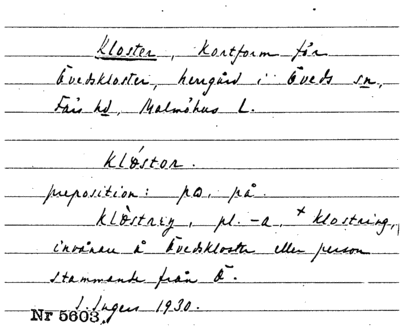 Kloster, kortform för
Övedskloster, herrgård i Öveds sn,
Färs hd, Malmöhus L.
klòstər.
preposition: pɑ, på.
klòstriŋ, pl. -a, + klostring,
invånare å Övedskloster eller person
stammande från Ö-.
S. Ingers 1930.
Nr 5603.